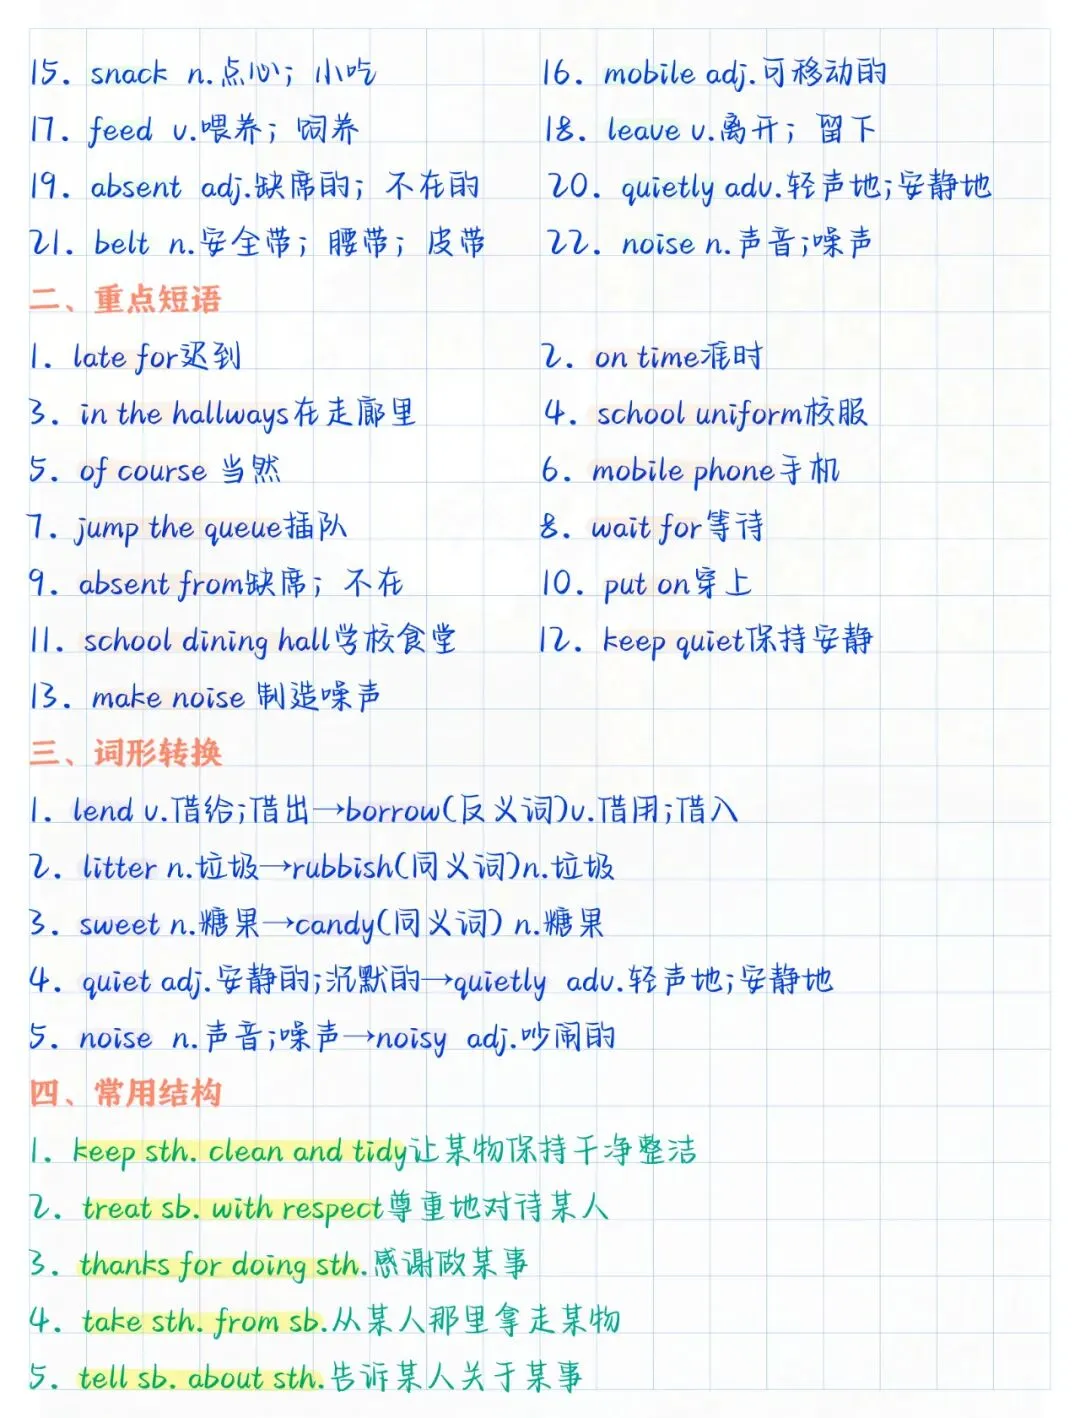 15. snack n.点心；小吃 16. mobile adj.可移动的
17. feed v.喂养；饲养 18. leave v.离开；留下
19. absent adj.缺席的；不在的 20. quietly adv.轻声地;安静地
21. belt n.安全带；腰带；皮带 22. noise n.声音;噪声
二、重点短语
1. late for迟到 2. on time准时
3. in the hallways在走廊里 4. school uniform校服
5. of course 当然 6. mobile phone手机
7. jump the queue插队 8. wait for等待
9. absent from缺席；不在 10. put on穿上
11. school dining hall学校食堂 12. keep quiet保持安静
13. make noise 制造噪声
三、词形转换
1. lend v.借给;借出→borrow(反义词)v.借用;借入
2. litter n.垃圾→rubbish(同义词)n.垃圾
3. sweet n.糖果→candy(同义词) n.糖果
4. quiet adj.安静的;沉默的→quietly adv.轻声地;安静地
5. noise n.声音;噪声→noisy adj.吵闹的
四、常用结构
1. keep sth. clean and tidy让某物保持干净整洁
2. treat sb. with respect尊重地对待某人
3. thanks for doing sth.感谢做某事
4. take sth. from sb.从某人那里拿走某物
5. tell sb. about sth.告诉某人关于某事